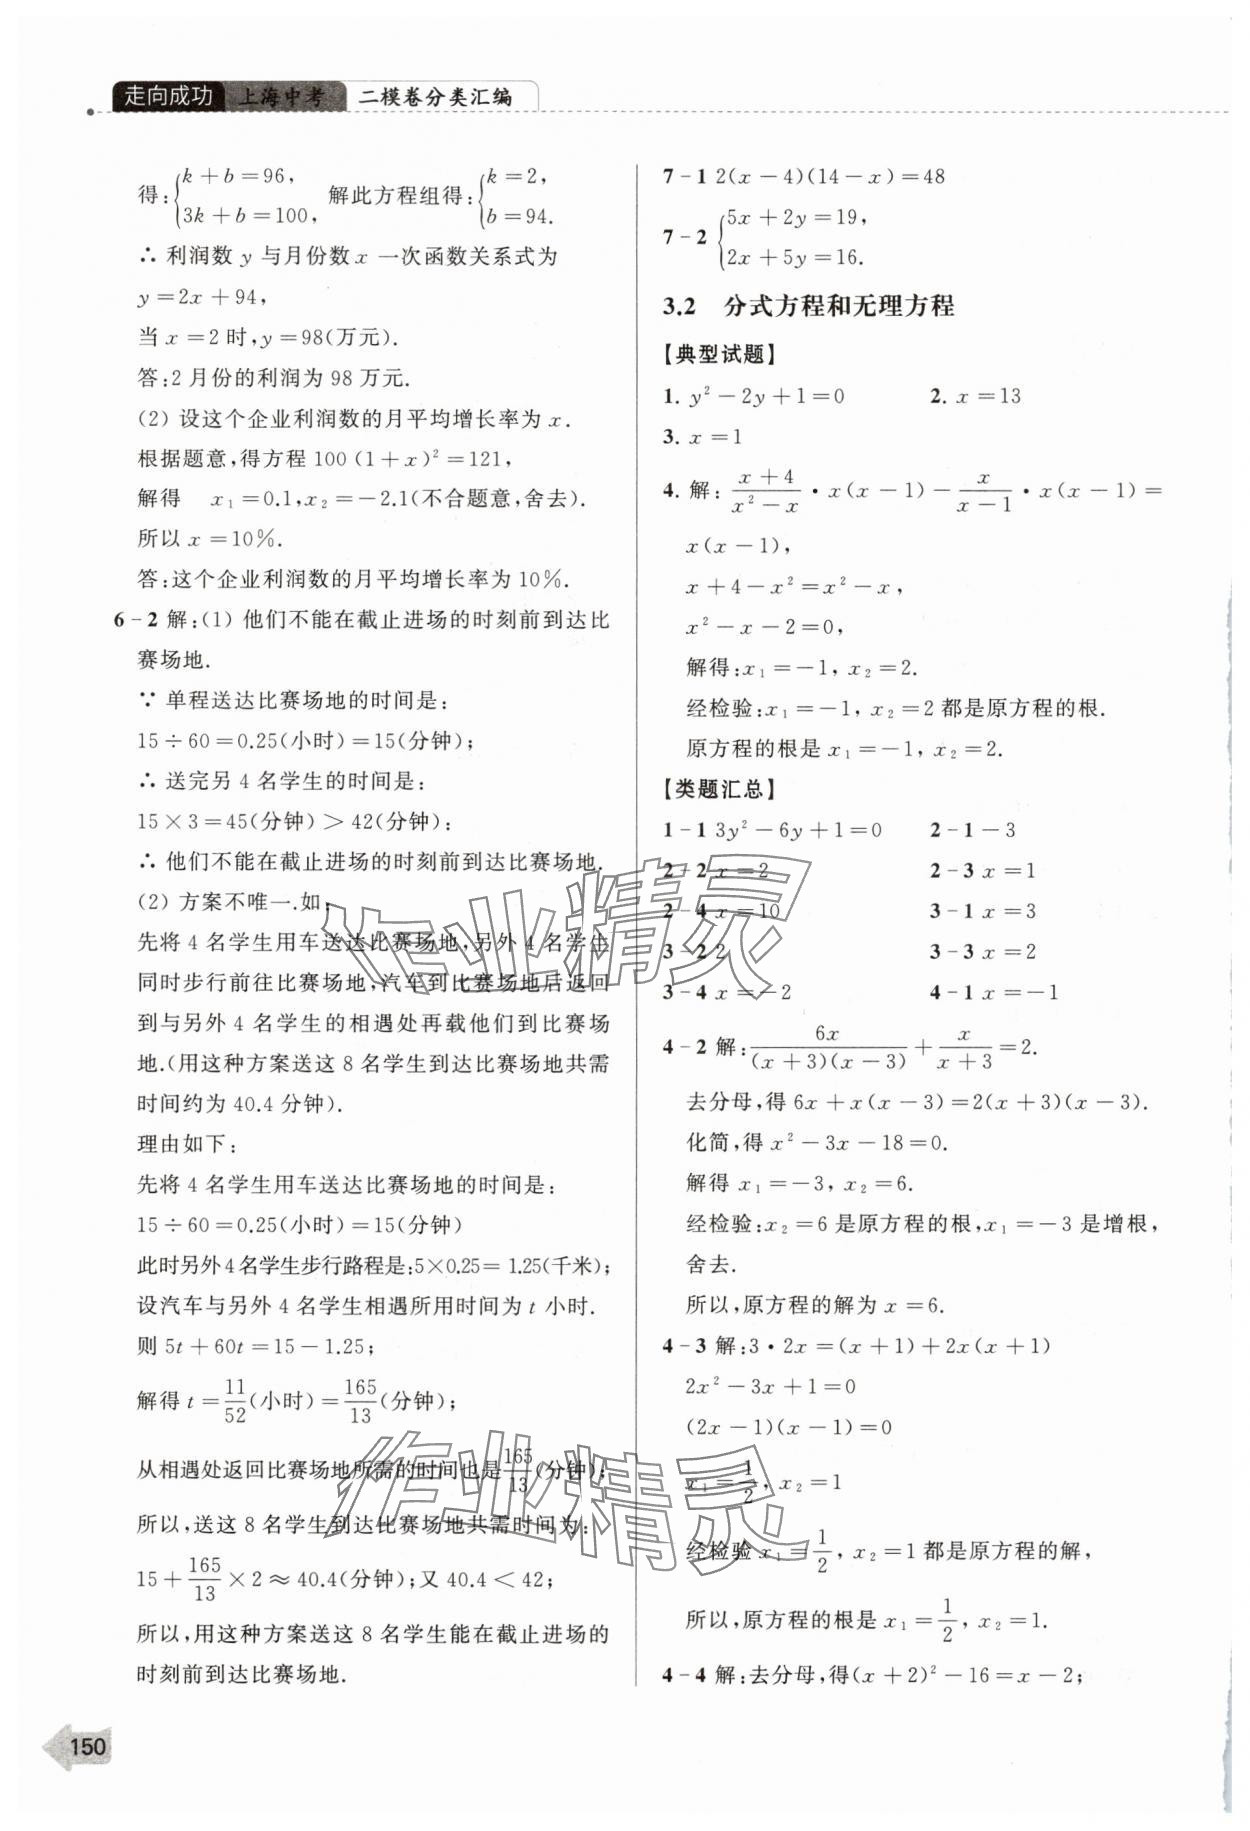 走向成功 上海中考 二模卷分类汇编
得:{k+b=96, 3k+b=100, 解此方程组得:{k=2, b=94.
∴ 利润数 y 与月份数 x 一次函数关系式为
y=2x+94,
当 x=2 时,y=98(万元).
答:2 月份的利润为 98 万元.
(2) 设这个企业利润数的月平均增长率为 x.
根据题意,得方程 100(1+x)²=121,
解得 x₁=0.1,x₂=-2.1(不合题意,舍去).
所以 x=10%.
答:这个企业利润数的月平均增长率为 10%.
6-2 解:(1) 他们不能在截止进场的时刻前到达比
赛场地.
∵ 单程送达比赛场地的时间是:
15÷60=0.25(小时)=15(分钟);
∴ 送完另 4 名学生的时间是:
15×3=45(分钟)>42(分钟);
∴ 他们不能在截止进场的时刻前到达比赛场地.
(2) 方案不唯一.如:
先将 4 名学生用车送达比赛场地,另外 4 名学生
同时步行前往比赛场地,汽车到比赛场地后返回
到与另外 4 名学生的相遇处再载他们到比赛场
地.(用这种方案送这 8 名学生到达比赛场地共需
时间约为 40.4 分钟).
理由如下:
先将 4 名学生用车送达比赛场地的时间是:
15÷60=0.25(小时)=15(分钟)
此时另外4名学生步行路程是:5×0.25=1.25(千米);
设汽车与另外 4 名学生相遇所用时间为 t 小时.
则 5t+60t=15-1.25;
解得 t=11/52(小时)=165/13(分钟);
从相遇处返回比赛场地所需的时间也是165/13(分钟);
所以,送这 8 名学生到达比赛场地共需时间为:
15+165/13×2≈40.4(分钟);又 40.4<42;
所以,用这种方案送这 8 名学生能在截止进场的
时刻前到达比赛场地.
150
7-1 2(x-4)(14-x)=48
7-2 {5x+2y=19, 2x+5y=16.
3.2 分式方程和无理方程
【典型试题】
1. y²-2y+1=0 2. x=13
3. x=1
4. 解: (x+4)/(x²-x)·x(x-1)-x/(x-1)·x(x-1)=
x(x-1),
x+4-x²=x²-x,
x²-x-2=0,
解得:x₁=-1, x₂=2.
经检验:x₁=-1, x₂=2 都是原方程的根.
原方程的根是 x₁=-1, x₂=2.
【类题汇总】
1-1 3y²-6y+1=0 2-1 -3
2-2 x=2 2-3 x=1
2-4 x=10 3-1 x=3
3-2 2 3-3 x=2
3-4 x=-2 4-1 x=-1
4-2 解: 6x/((x+3)(x-3))+x/(x+3)=2.
去分母,得 6x+x(x-3)=2(x+3)(x-3).
化简,得 x²-3x-18=0.
解得 x₁=-3, x₂=6.
经检验:x₂=6 是原方程的根,x₁=-3 是增根,
舍去.
所以,原方程的解为 x=6.
4-3 解:3·2x=(x+1)+2x(x+1)
2x²-3x+1=0
(2x-1)(x-1)=0
x₁=1/2, x₂=1
经检验 x₁=1/2, x₂=1 都是原方程的解,
所以,原方程的根是 x₁=1/2, x₂=1.
4-4 解:去分母,得(x+2)²-16=x-2;
作业精灵
作业精灵